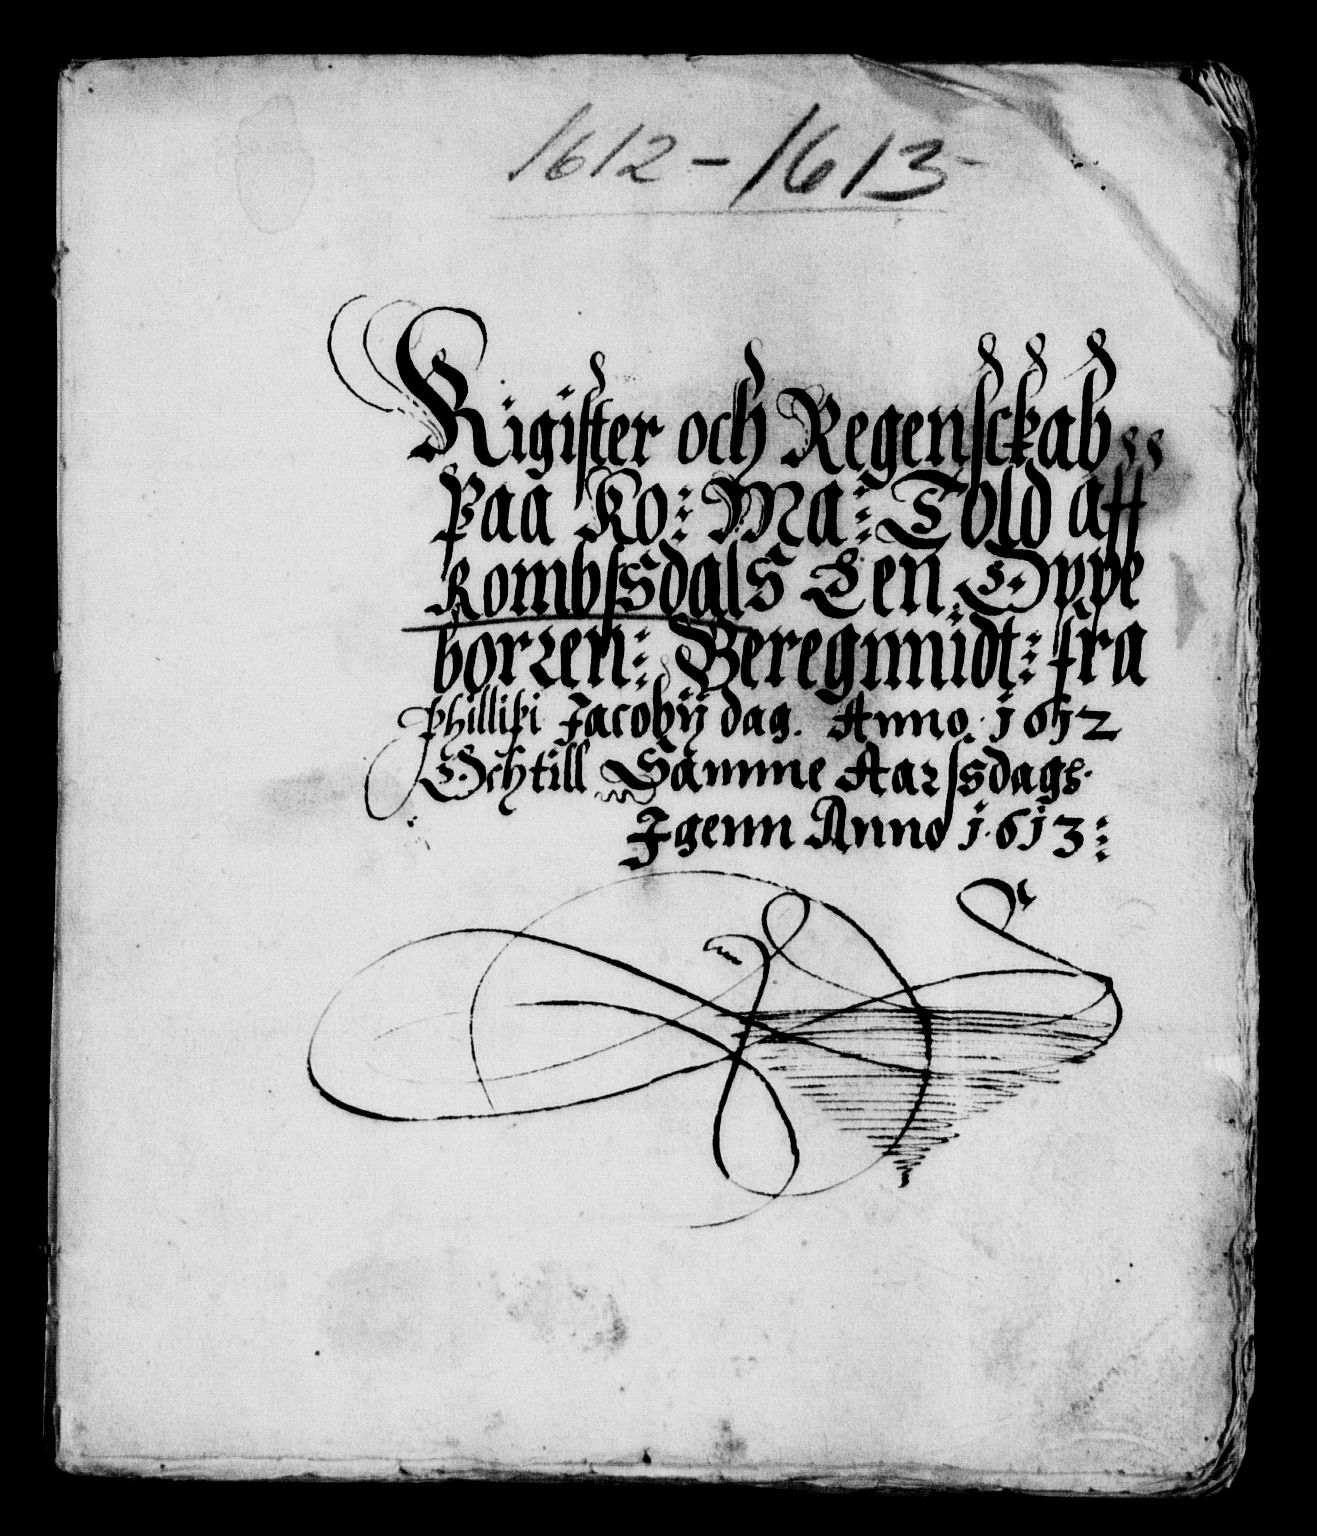 1612 - 1613
Rigister och Regensckab
Paa Ko: Ma: Told aff
Rombssdals Len Oppe
borren: Beregnnidt: fra
Phillipi Jacobij dag. Anno. 1612
Och till Samme Aarssdags.
Igenn Anno 1613: